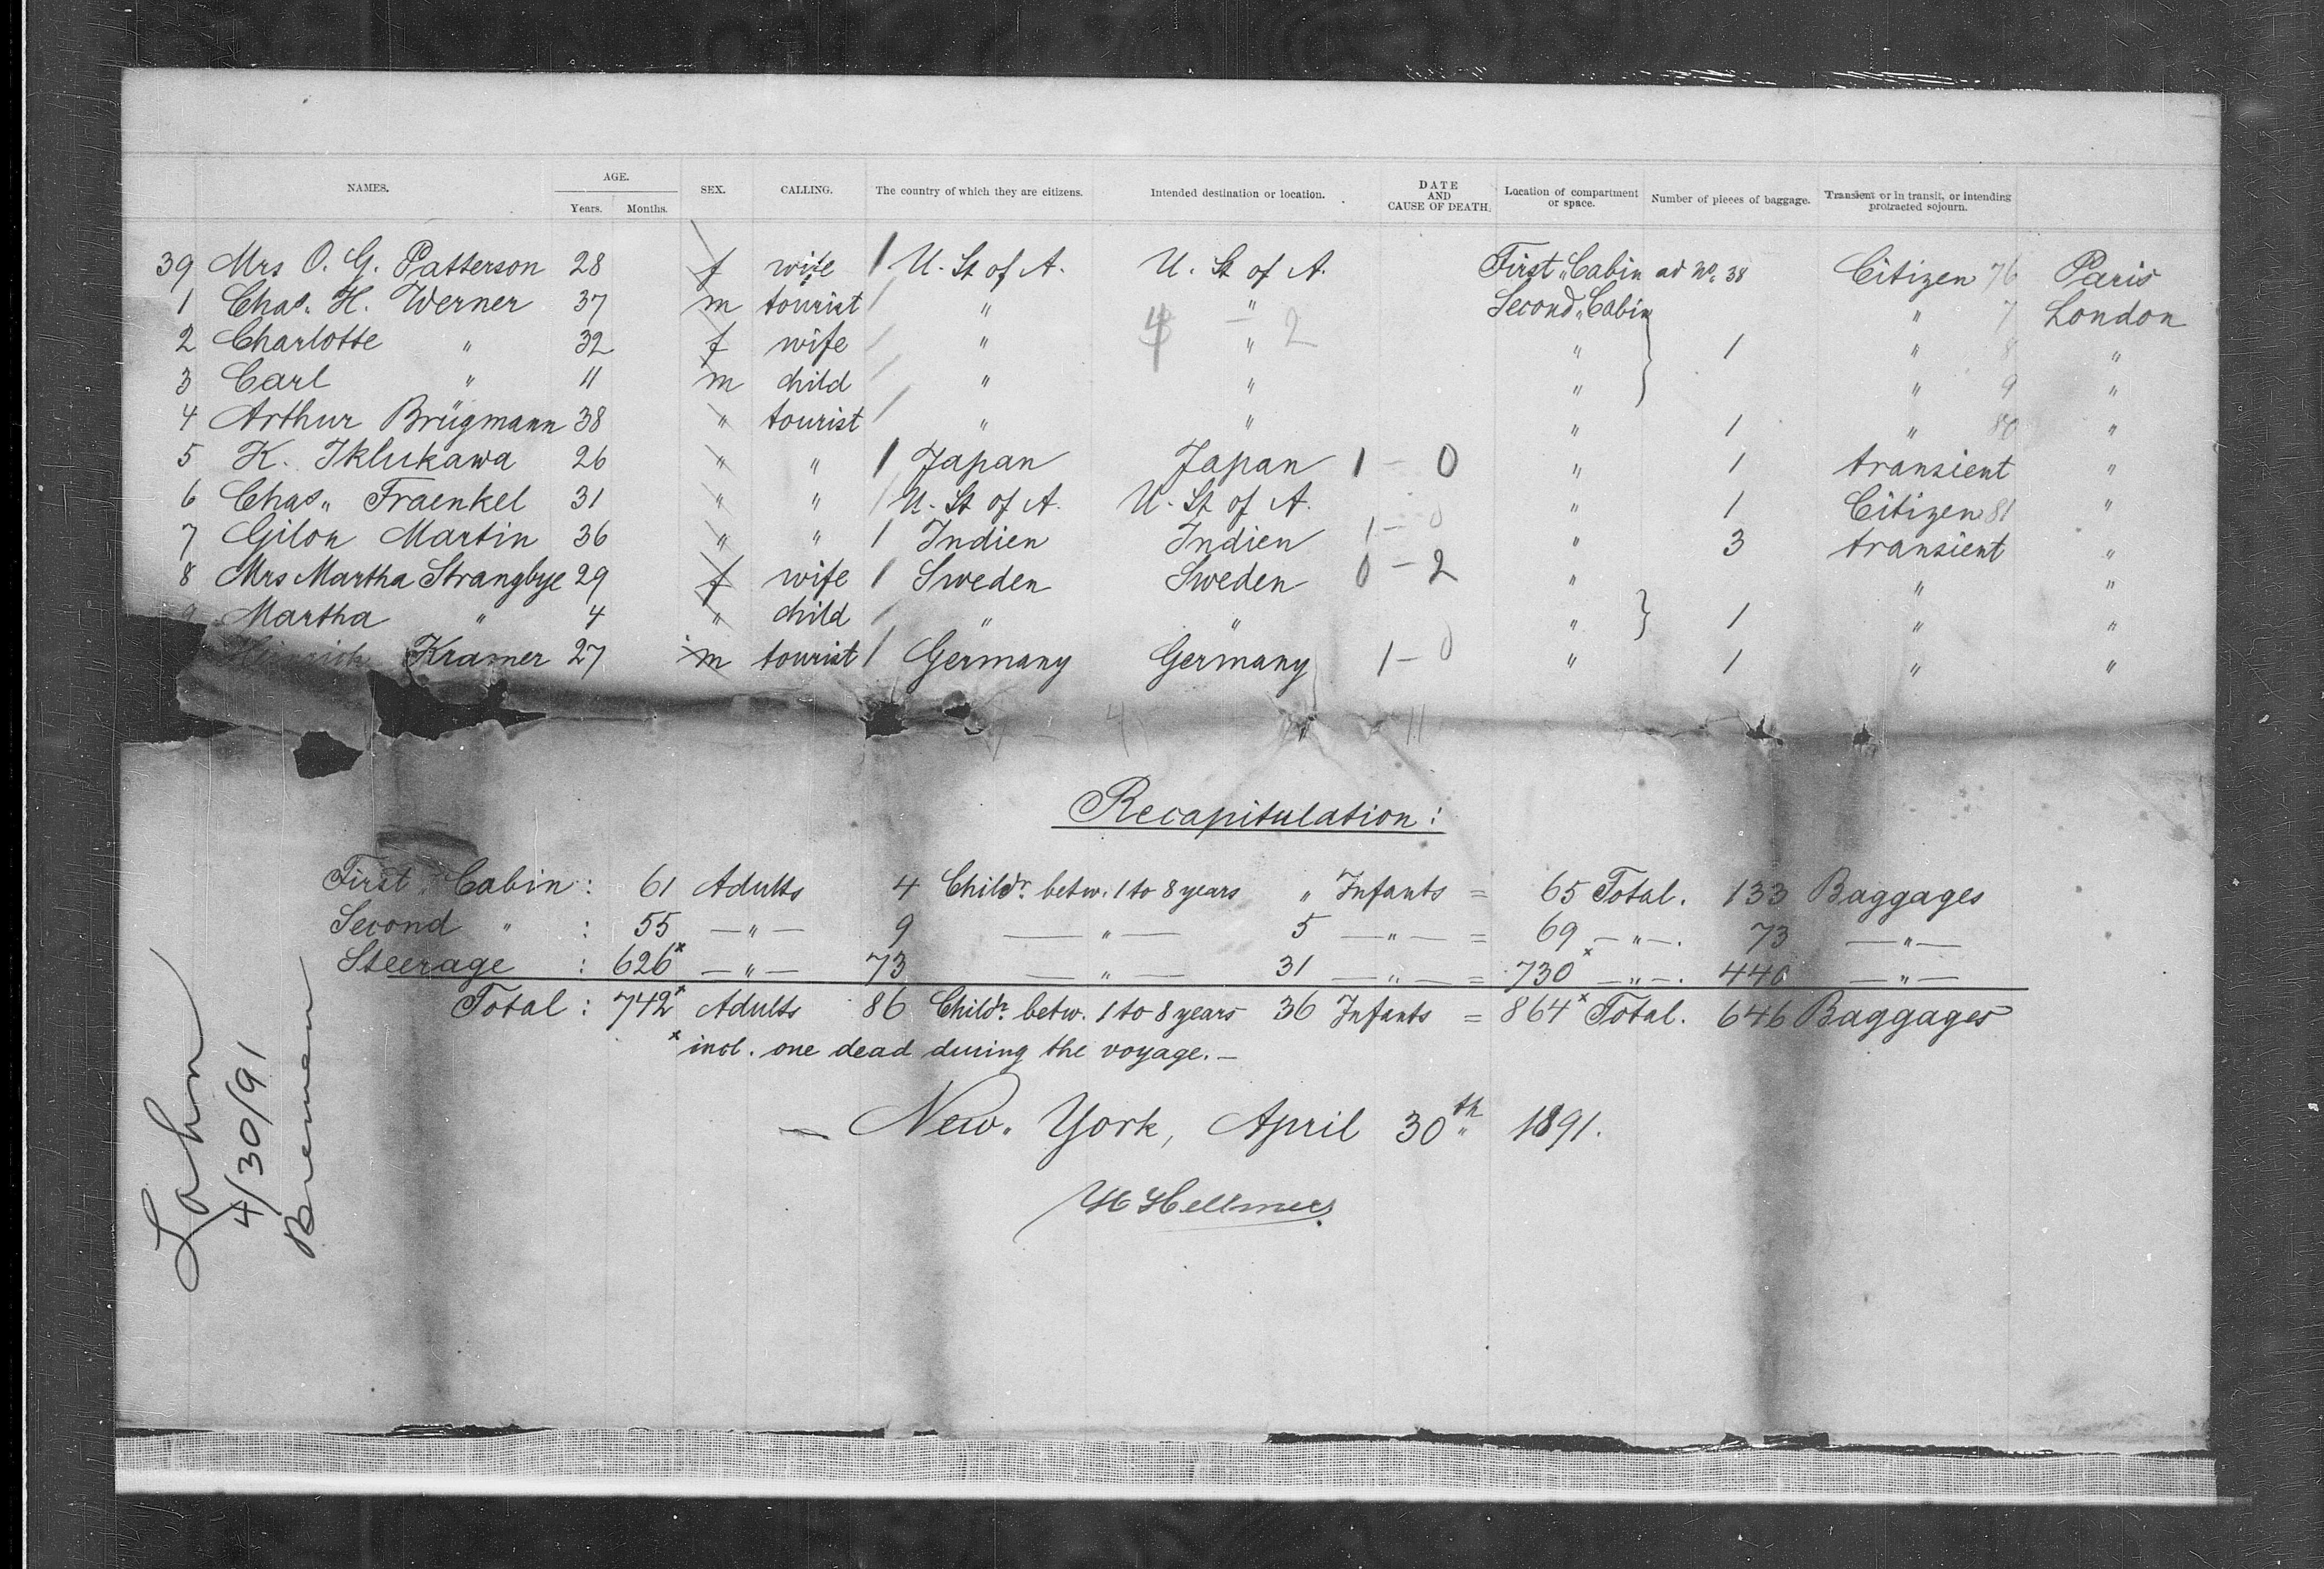 NAMES. AGE. Years. Months. SEX. CALLING. The country of which they are citizens. Intended destination or location. DATE AND CAUSE OF DEATH. Location of compartment or space. Number of pieces of baggage. Transient or in transit, or intending protracted sojourn.
39 Mrs O. G. Patterson 28 f wife 1 U. St of A. U. St of A. First „ Cabin ad No. 38 Citizen 76 Paris
1 Chas. H. Werner 37 m tourist 1 " " Second „ Cabin " 7 London
2 Charlotte " 32 f wife / " 4 - " 2 " 1 " 8 "
3 Carl " 11 m child / " " " " 9 "
4 Arthur Brügmann 38 " tourist / " " " 1 " 80 "
5 K. Iklukawa 26 " " 1 Japan Japan 1 - 0 " 1 transient "
6 Chas„ Fraenkel 31 " " / U. St of A. U. St of A. " 1 Citizen 81 "
7 Gilon Martin 36 " " 1 Indien Indien 1 - 0 " 3 transient "
8 Mrs Martha Strangbye 29 f wife 1 Sweden Sweden 0 - 2 " " "
9 Martha " 4 " child / " " " 1 " "
Heinrich Kramer 27 m tourist 1 Germany Germany 1 - 0 " 1 " "
Recapitulation:
First „ Cabin: 61 Adults 4 Childr. betw. 1 to 8 years " Infants = 65 Total. 133 Baggages
Second " : 55 —"— 9 —"— 5 —"— = 69 —"—. 73 —"—
Steerage : 626* —"— 73 —"— 31 —"— = 730* —"—. 440 —"—
Total: 742* Adults 86 Childr. betw. 1 to 8 years 36 Infants = 864* Total. 646 Baggages
* incl. one dead during the voyage. —
— New„ York, April 30th„ 1891.
H Hellmers
Lahn
4/30/91
Bremen